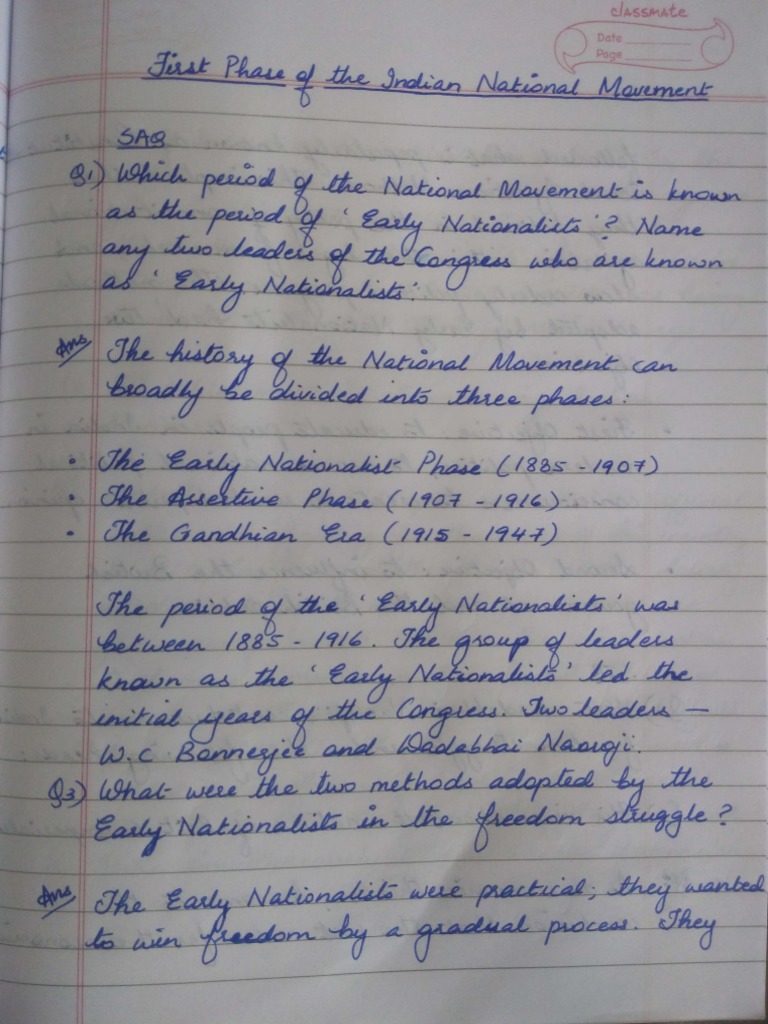 classmate
Date
Page
First Phase of the Indian National Movement
SAQ
Q1) Which period of the National Movement is known
as the period of 'Early Nationalists'? Name
any two leaders of the Congress who are known
as 'Early Nationalists'.
Ans The history of the National Movement can
broadly be divided into three phases:
• The Early Nationalist Phase (1885 - 1907)
• The Assertive Phase (1907 - 1916)
• The Gandhian Era (1915 - 1947)
The period of the 'Early Nationalists' was
between 1885 - 1916. The group of leaders
known as the 'Early Nationalists' led the
initial years of the Congress. Two leaders —
W.C Bannerjee and Dadabhai Naoroji.
Q3) What were the two methods adopted by the
Early Nationalists in the freedom struggle?
Ans The Early Nationalists were practical; they wanted
to win freedom by a gradual process. They